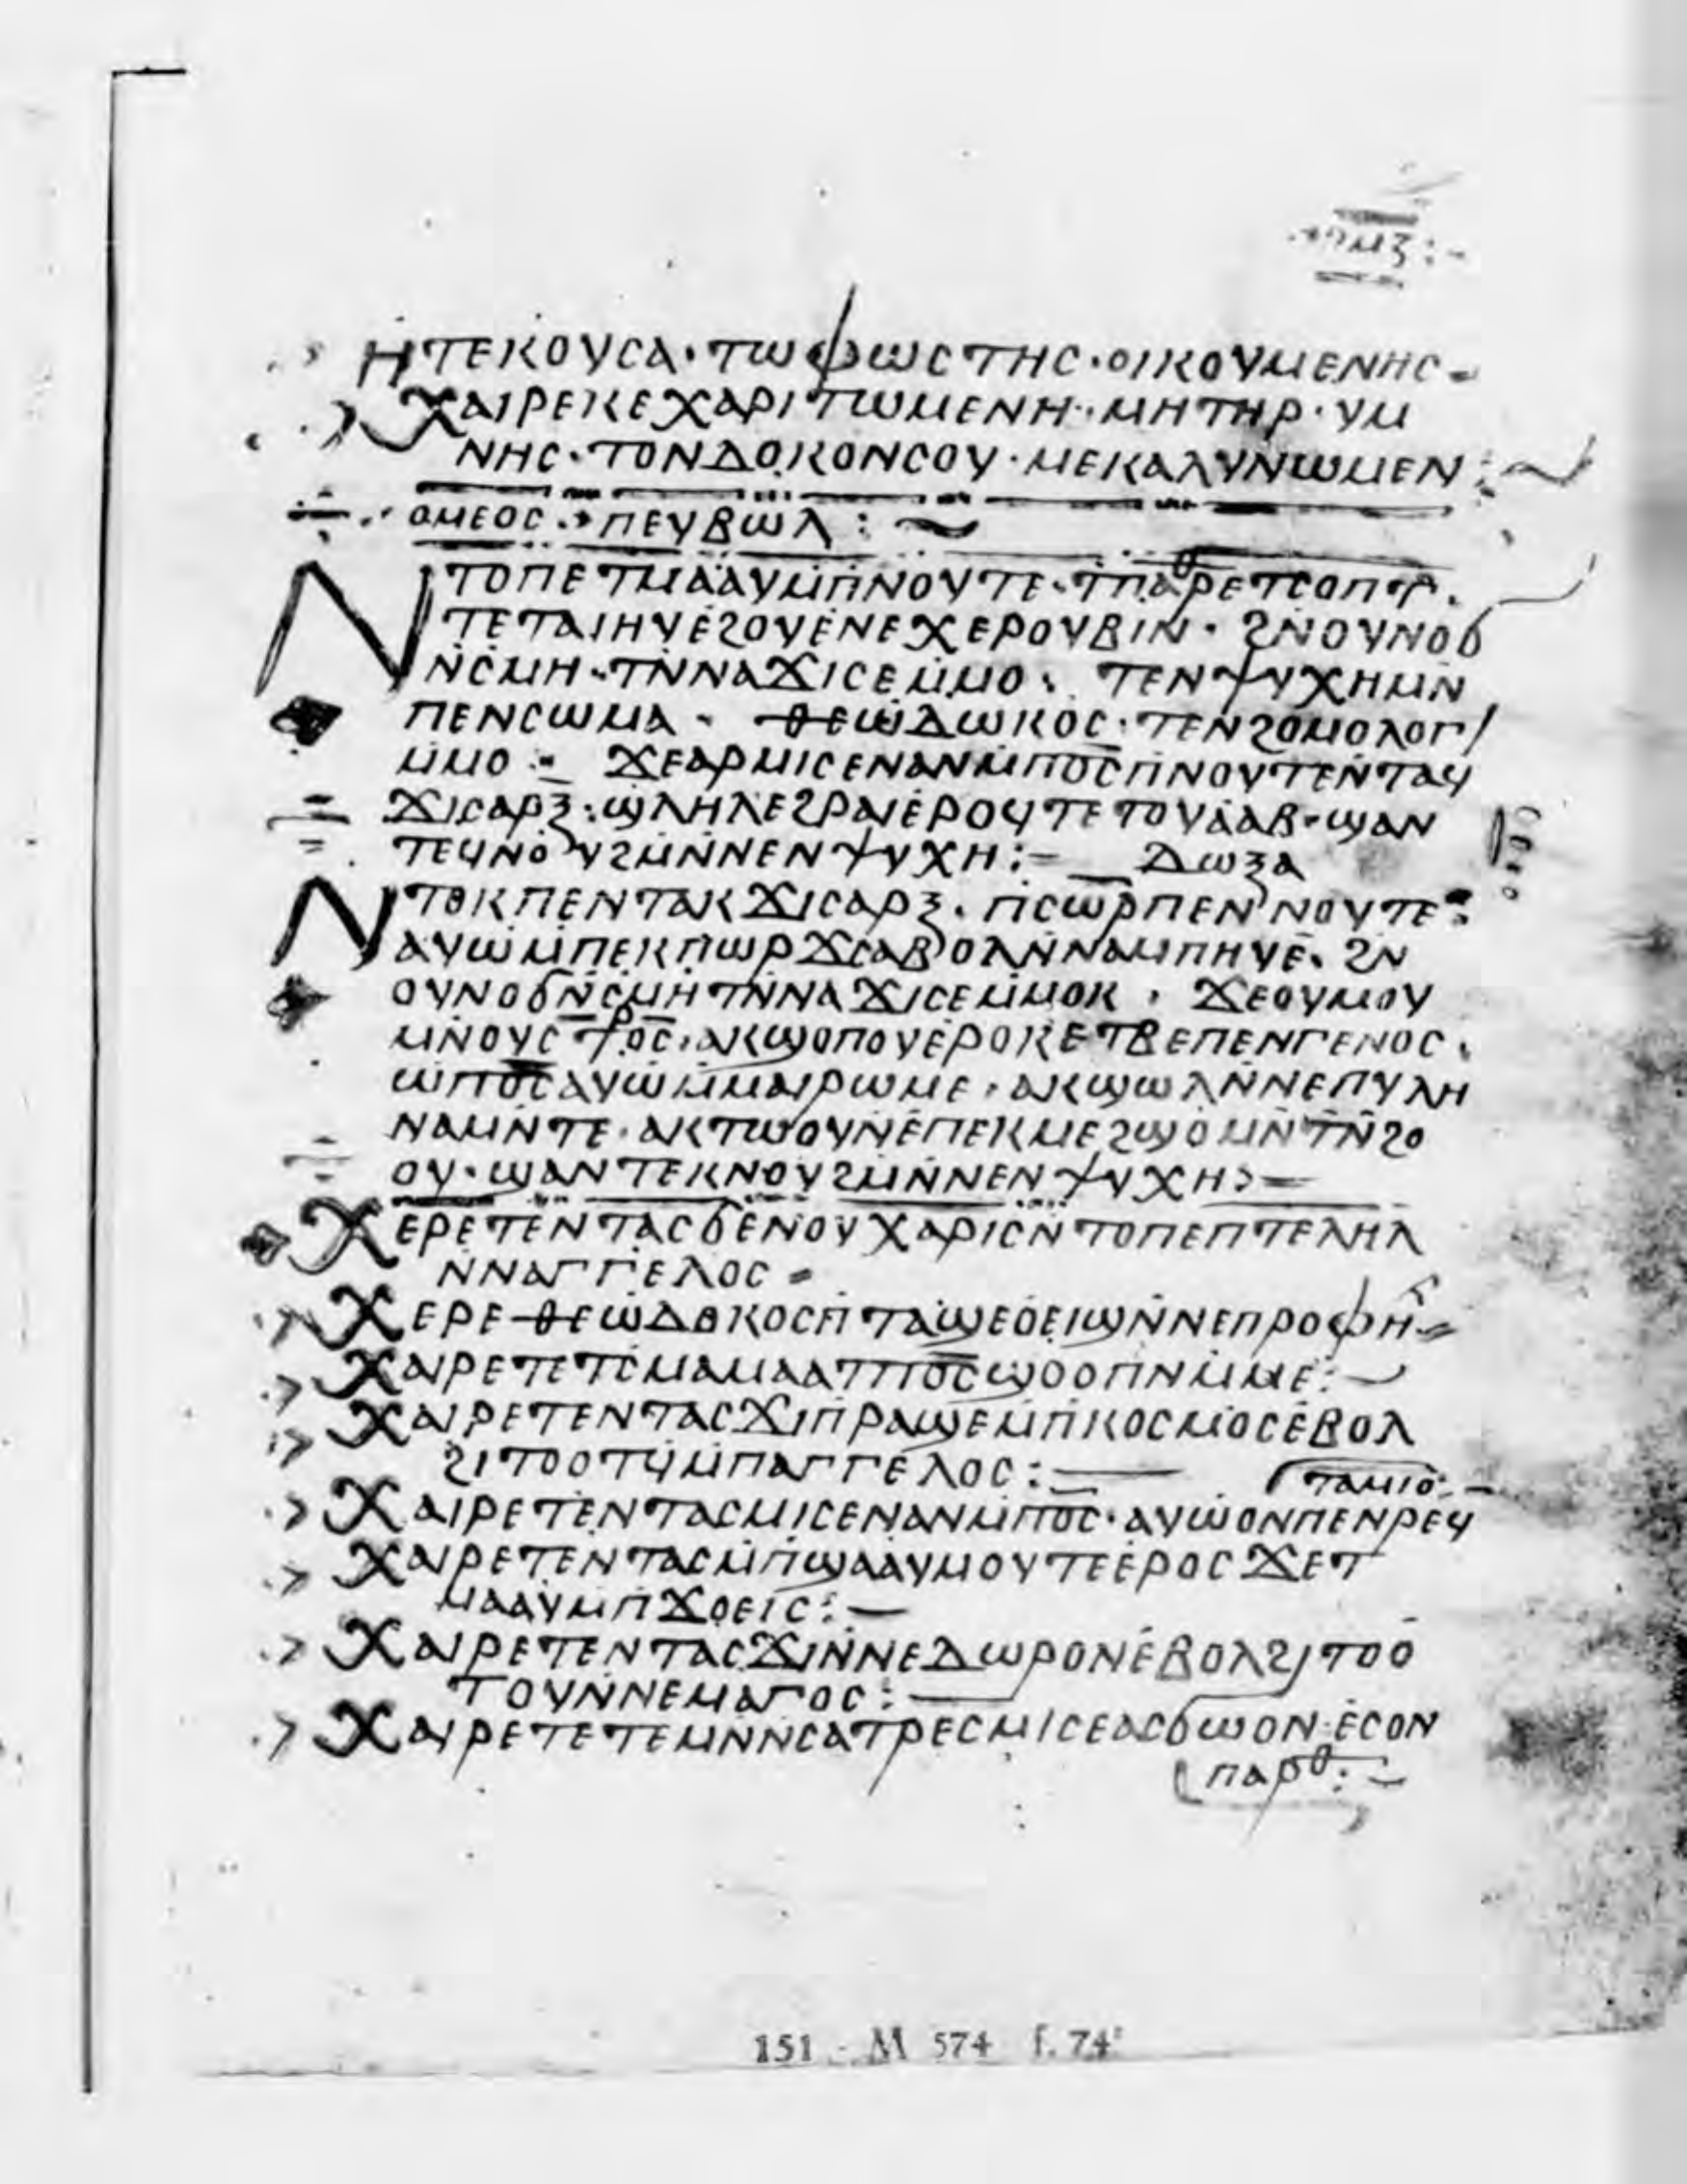 ⲣⲙⲍ:-
ⲎⲦⲈⲔⲞⲨⲤⲀ· ⲦⲰⲪⲰⲤ ⲦⲎⲤ· ⲞⲒⲔⲞⲨⲘⲈⲚⲎⲤ=
ⲬⲀⲒⲢⲈⲔⲈⲬⲀⲢⲒⲦⲰⲘⲈⲚⲎ· ⲘⲎⲦⲎⲢ· ⲨⲘ
ⲚⲎⲤ· ⲦⲞⲚⲆⲞⲔⲞⲚⲤⲞⲨ· ⲘⲈⲔⲀⲖⲨⲚⲰⲘⲈⲚ:
ⲞⲘⲈⲞⲤ· ⲠⲈⲨⲂⲰⲖ:
ⲚⲦⲞⲠⲈ ⲦⲘⲀⲀⲨⲘ̄ⲠⲚⲞⲨⲦⲈ· ⲦⲠⲀⲢ̅ⲑ̅ⲈⲦⲤⲞⲠⲤ̄.
ⲦⲈⲦⲀⲒⲎⲨⲈ̇ϨⲞⲨⲈ̇ⲚⲈⲬⲈⲢⲞⲨⲂⲒⲚ· ϨⲚⲞⲨⲚⲞϬ
Ⲛ̇ⲤⲘⲎ· ⲦⲚ̇ⲚⲀϪⲒⲤⲈⲘ̇ⲘⲞ· ⲦⲈⲚⲮⲨⲬⲎⲘⲚ̇
ⲠⲈⲚⲤⲰⲘⲀ· ⲐⲈⲰ̇ⲆⲰⲔⲞⲤ· ⲦⲈⲚϨⲞⲘⲞⲖⲞⲄ/
Ⲙ̇ⲘⲞ:- ϪⲈⲀⲢⲘⲒⲤⲈⲚⲀⲚⲘ̇Ⲡ̅Ⲟ̅Ⲥ̅ⲠⲚⲞⲨⲦⲈⲚ̇ⲦⲀϤ
ϪⲒⲤⲀⲢⲜ: ϢⲖⲎⲖⲈϨⲢⲀⲒⲈ̇ⲢⲞϤ ⲦⲈⲦⲞⲨⲀ̇ⲀⲂ· ϢⲀⲚ
ⲦⲈϤⲚⲞⲨϨⲘ̇Ⲛ̇ⲚⲈⲚⲮⲨⲬⲎ:- ⲆⲰⲜⲀ
ⲚⲦⲞⲔⲠⲈⲚⲦⲀⲔϪⲒⲤⲀⲢⲜ· ⲠⲤⲰ̅Ⲣ̅ⲠⲈⲚⲚⲞⲨⲦⲈ:
ⲀⲨⲰⲘ̇ⲠⲈⲔⲠⲰⲢϪⲤⲀⲂⲞⲖⲚ̇ⲚⲀⲘⲠⲎⲨⲈ̇· ϨⲚ
ⲞⲨⲚⲞϬⲚ̇ⲤⲘⲎ ⲦⲚ̇ⲚⲀϪⲒⲤⲈⲘ̇ⲘⲞⲔ· ϪⲈⲞⲨⲘⲞⲨ
ⲘⲚ̇ⲞⲨⲤ̅ⳁ̅Ⲟ̅Ⲥ̅· ⲀⲔϢⲞⲠⲞⲨⲈ̇ⲢⲞⲔⲈⲦⲂⲈⲠⲈⲚⲄⲈⲚⲞⲤ·
ⲰⲠ̅Ⲟ̅Ⲥ̅ⲀⲨⲰⲘ̇ⲘⲀⲒⲢⲰⲘⲈ· ⲀⲔϢⲰⲖⲚ̇ⲚⲈⲠⲨⲖⲎ
ⲚⲀⲘⲚ̇ⲦⲈ· ⲀⲔⲦⲰⲞⲨⲚⲈ̇ⲠⲈⲔⲘⲈϨϢⲞⲘⲚ̇ⲦⲚ̇ϨⲞ
ⲞⲨ· ϢⲀⲚⲦⲈⲔⲚⲞⲨϨⲘ̇Ⲛ̇ⲚⲈⲚⲮⲨⲬⲎ:=
ⲬⲈⲢⲈⲦⲈⲚ̇ⲦⲀⲤϬⲈⲚⲞⲨⲬⲀⲢⲒⲤⲚ̇ⲦⲞⲠⲈⲠⲦⲈⲖⲎⲖ
Ⲛ̇ⲚⲀⲄⲄⲈⲖⲞⲤ=
ⲬⲈⲢⲈ ⲐⲈⲰ̇ⲆⲞⲔⲞⲤⲠ̇ⲦⲀϢⲈⲞ̇ⲈⲒϢⲚ̇ⲚⲈⲠⲢⲞⲪⲎ=
ⲬⲀⲒⲢⲈⲦⲈⲦⲤ̇ⲘⲀⲘⲀⲀⲦⲠ̅Ⲟ̅Ⲥ̅ϢⲞⲞⲠⲚⲘ̇ⲘⲈ:-
ⲬⲀⲒⲢⲈⲦⲈⲚⲦⲀⲤϪⲒⲠ̇ⲢⲀϢⲈⲘ̇Ⲡ̇ⲔⲞⲤⲘⲞⲤⲈ̇ⲂⲞⲖ
ϨⲒⲦⲞⲞⲦϤ̇Ⲙ̇ⲠⲀⲄⲄⲈⲖⲞⲤ:
ⲦⲀⲘⲒⲞ
ⲬⲀⲒⲢⲈⲦⲈⲚ̇ⲦⲀⲤⲘⲒⲤⲈⲚⲀⲚⲘ̇Ⲡ̅Ⲟ̅Ⲥ̅· ⲀⲨⲰⲞⲚⲠⲈⲚⲢⲈϤ
ⲬⲀⲒⲢⲈⲦⲈⲚⲦⲀⲤⲘ̇Ⲡ̇ϢⲀ̇ⲀⲨⲘⲞⲨⲦⲈⲈ̇ⲢⲞⲤϪⲈⲦ
ⲘⲀⲀⲨⲘ̇ⲠϪⲞⲈⲒⲤ:-
ⲬⲀⲒⲢⲈⲦⲈⲚⲦⲀⲤϪⲒⲚ̇ⲚⲈⲆⲰⲢⲞⲚⲈ̇ⲂⲞⲖϨⲒⲦⲞⲞ
ⲦⲞⲨⲚ̇ⲚⲈⲘⲀⲄⲞⲤ:
ⲬⲀⲒⲢⲈⲦⲈⲦⲈⲘⲚ̇Ⲛ̇ⲤⲀⲦⲢⲈⲤⲘⲒⲤⲈⲀⲤϬⲰⲞⲚ· Ⲉ̇ⲤⲞⲚ
ⲡⲁⲣⲑ:-
151 - M 574 f. 74ʳ